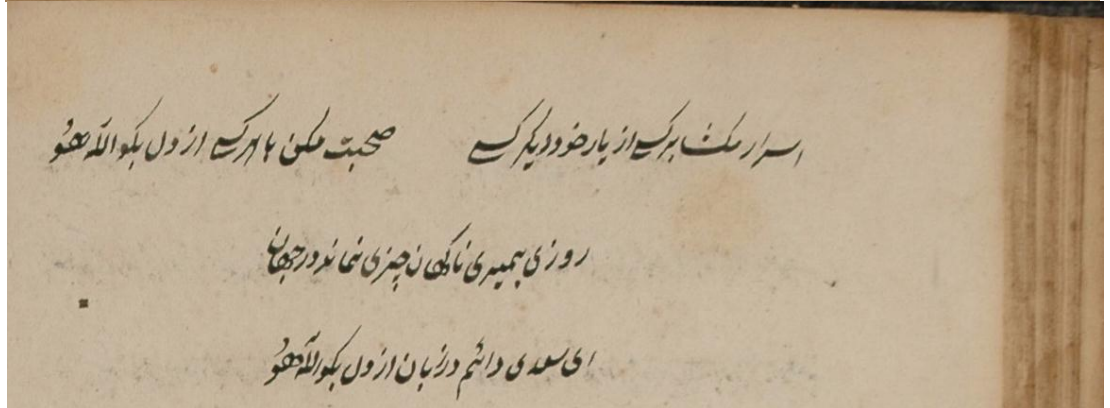 اسرار مکش برکسے از یار خود دیگر کسے صحبت مکن باهرکسے از دل بکو الله هو
روزی بمیری ناکهان چیزی نماند در جهان
ای سعدی دائم در زبان از دل بکو الله هو